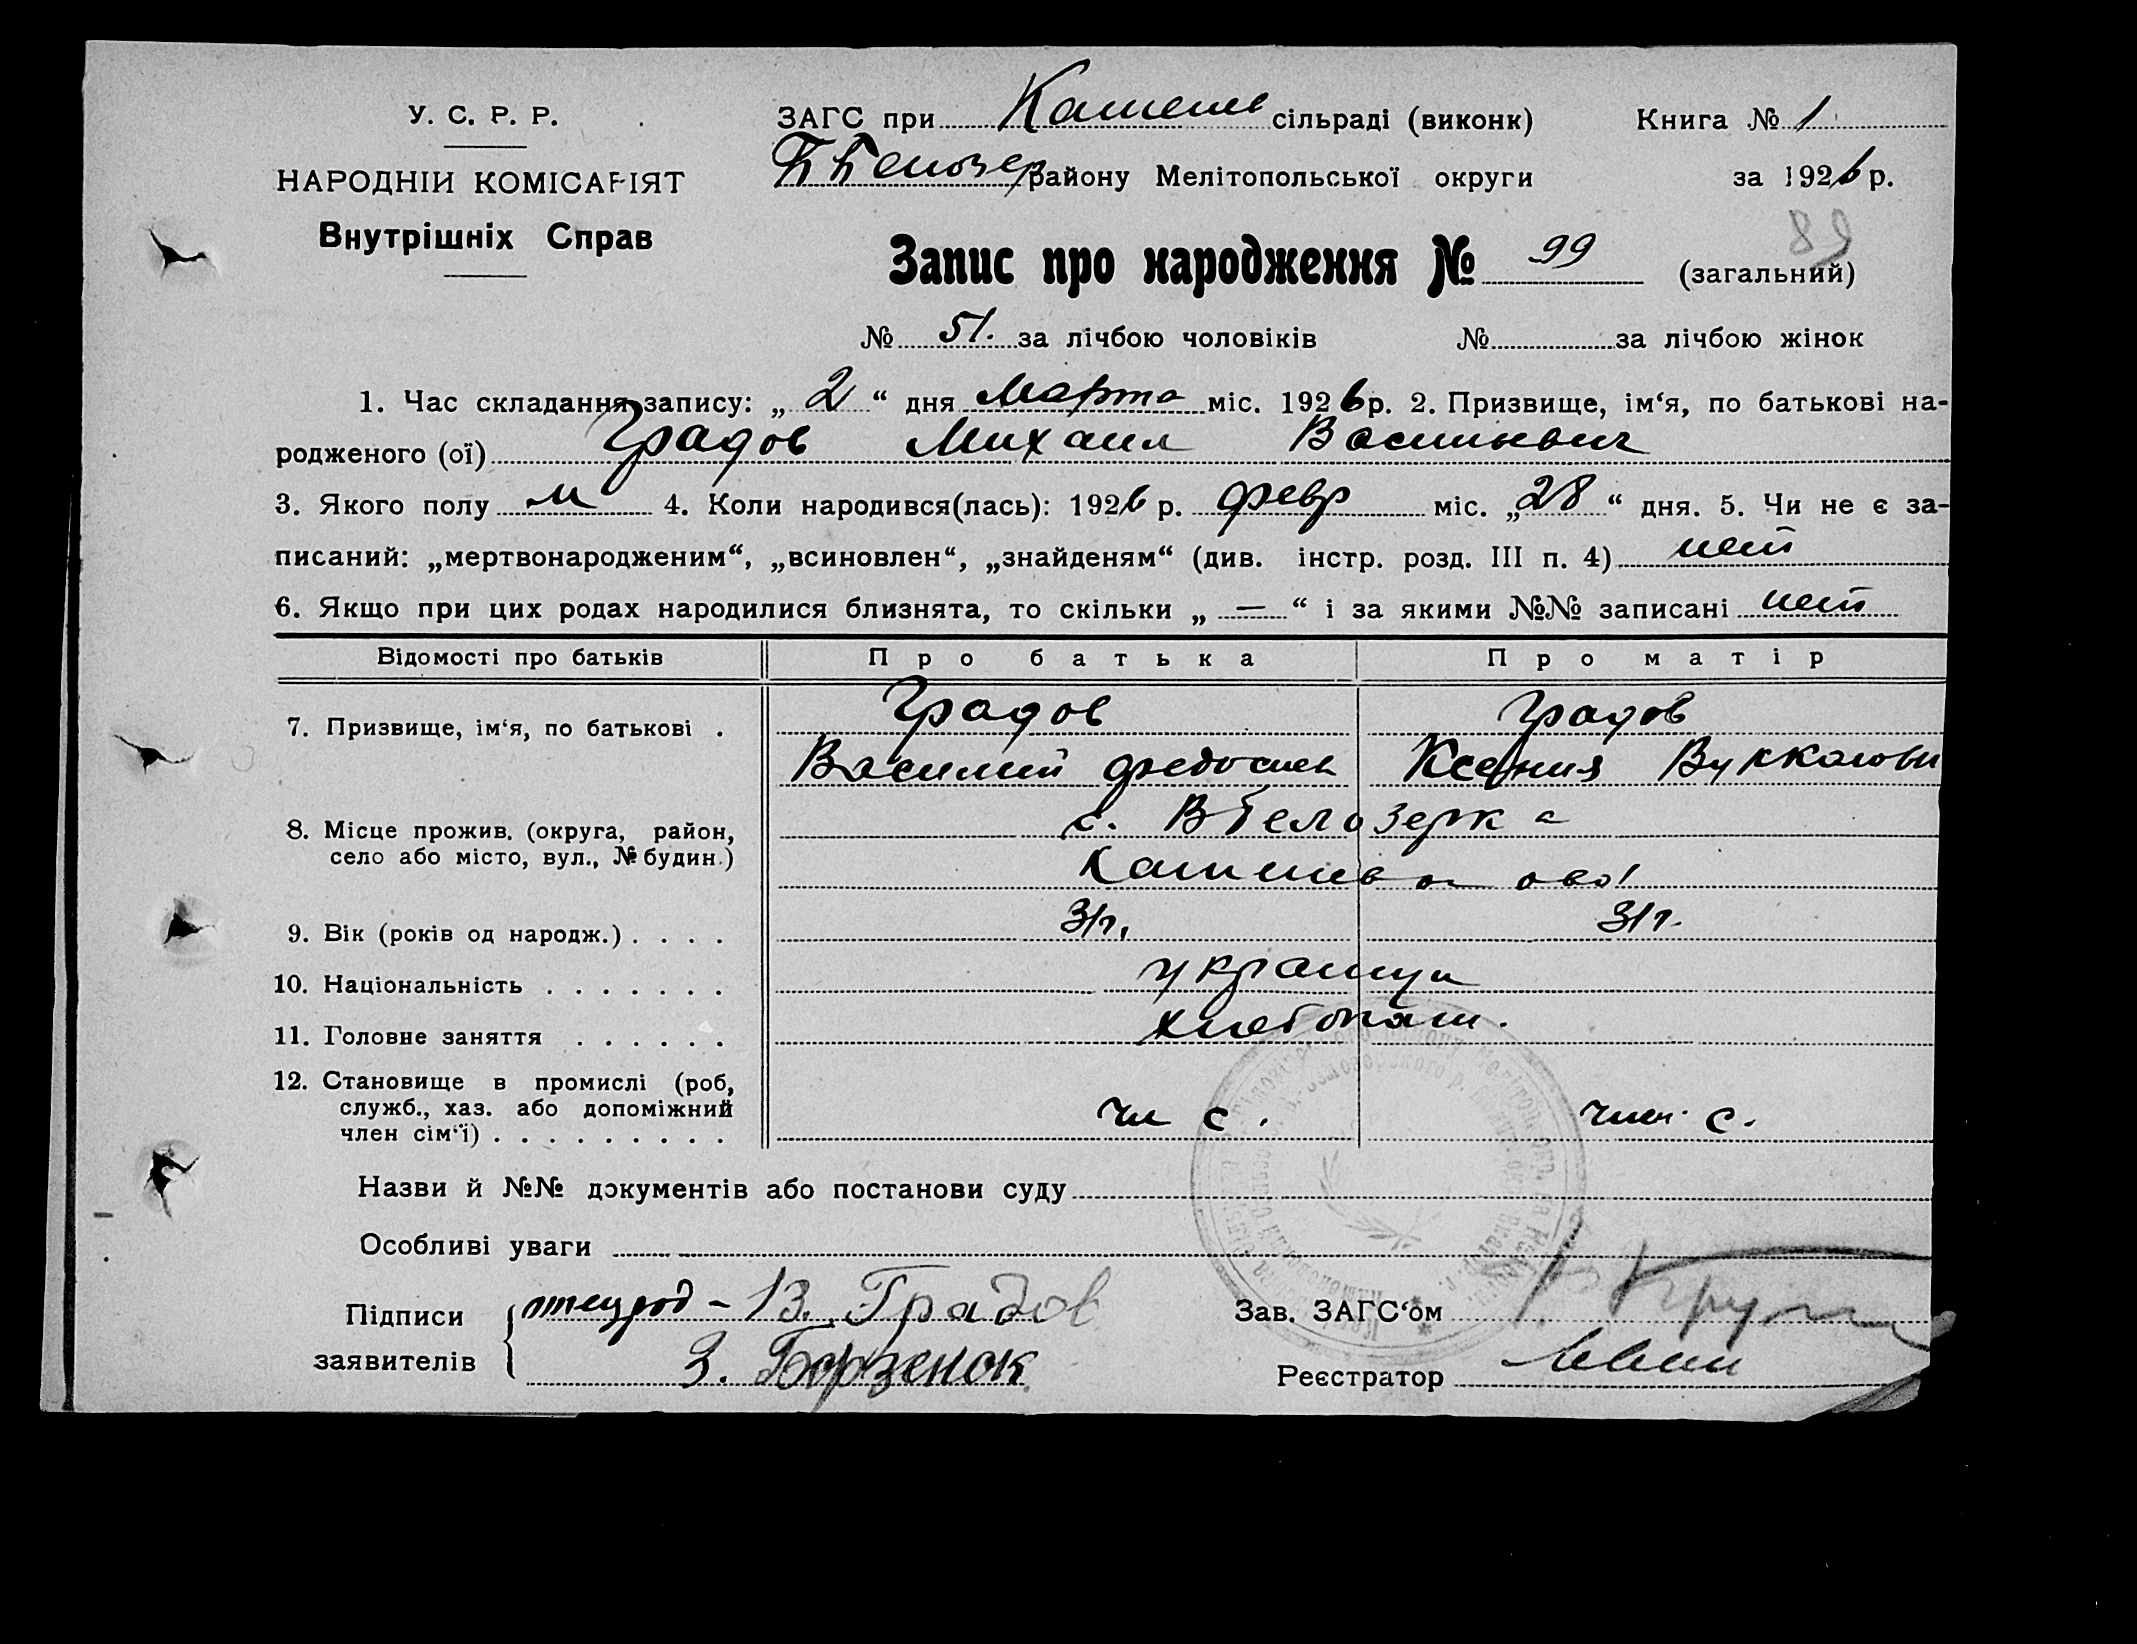 У. С. Р. Р.
НАРОДНІЙ КОМІСАРІЯТ
Внутрішніх Справ
ЗАГС при сільраді (виконк) Книга № 1
району Мелітопольської округи за 1926 р.
89
Запис про народження № 99 (загальний)
№ 51. за лічбою чоловіків № за лічбою жінок
1. Час складання запису: „ 2 “ дня Марта міс. 1926 р. 2. Призвище, ім‘я, по батькові на-
родженого (ої) Градов Михаил Васильевич
3. Якого полу м 4. Коли народився(лась): 1926 р. февр міс. „28“ дня. 5. Чи не є за-
писаний: „мертвонародженим“, „всиновлен“, „знайденям“ (див. інстр. розд. III п. 4) нет
6. Якщо при цих родах народилися близнята, то скільки „ — “ і за якими №№ записані нет
Відомості про батьків Про батька Про матір
7. Призвище, ім‘я, по батькові . Градов Градов
Василий Ксения
8. Місце прожив. (округа, район, с. В Белозерка
село або місто, вул., № будин.)
9. Вік (років од народж.) . . . . 31 г. 31 г.
10. Національність . . . . . . . украинци
11. Головне заняття . . . . . . хлебопаш.
12. Становище в промислі (роб,
служб., хаз. або допоміжний чл с. член с.
член сім‘ї) . . . . . . . . .
Назви й №№ документів або постанови суду
Особливі уваги
Підписи В. Градов Зав. ЗАГС‘ом
заявителів З. Борзенок Реєстратор